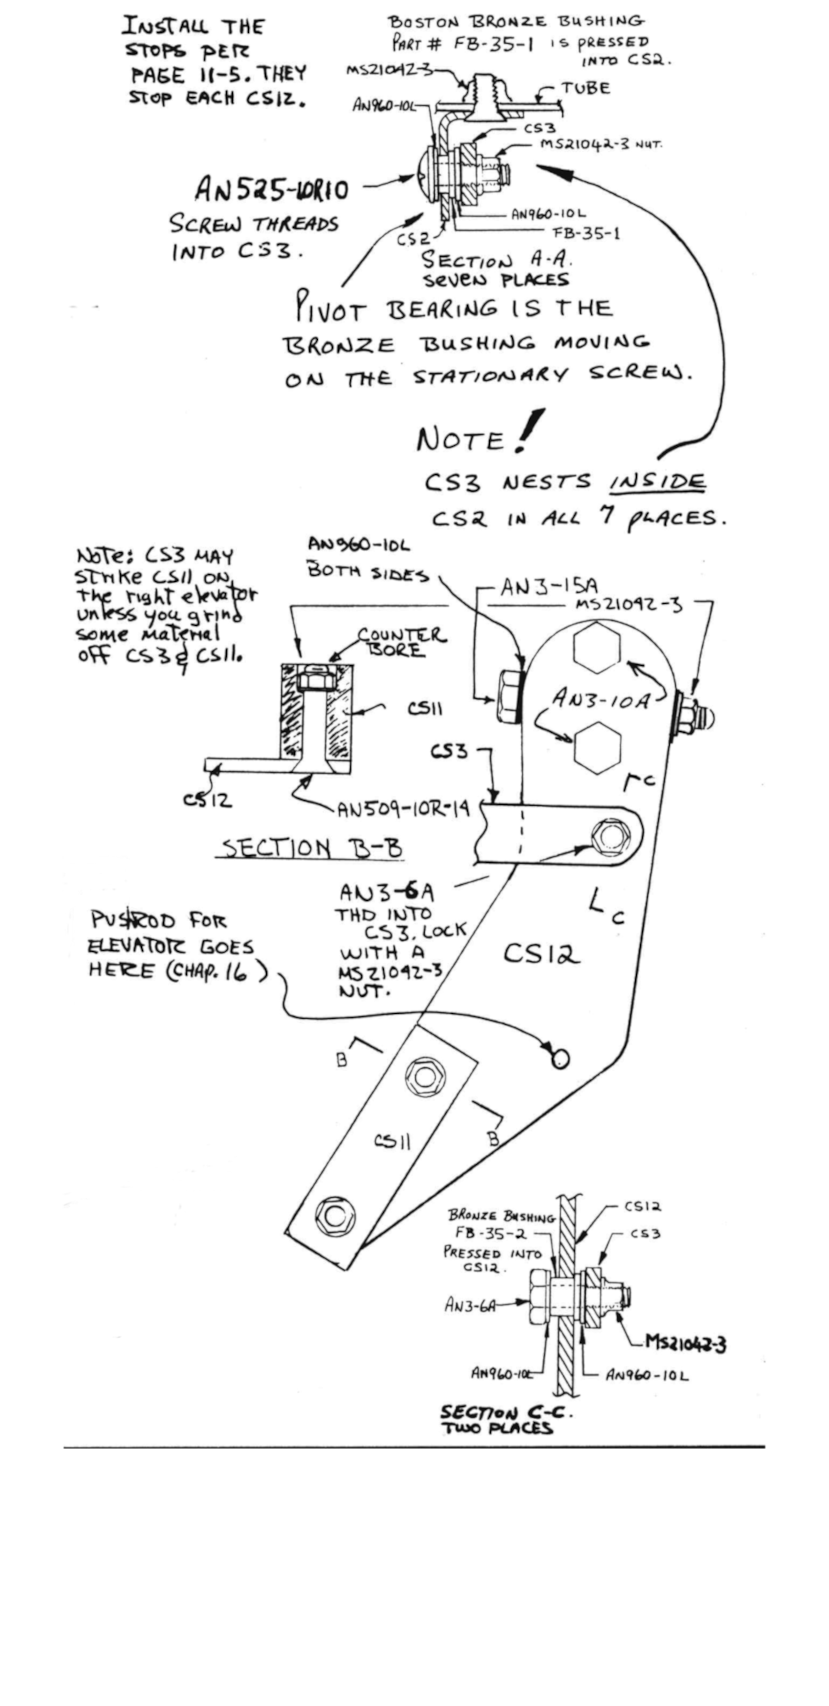 INSTALL THE
STOPS PER
PAGE 11-5. THEY
STOP EACH CS12.
BOSTON BRONZE BUSHING
PART # FB-35-1 IS PRESSED
INTO CS2.
MS21042-3
TUBE
AN960-10L
CS3
MS21042-3 NUT.
AN525-10R10
SCREW THREADS
INTO CS3.
AN960-10L
FB-35-1
CS2
SECTION A-A.
SEVEN PLACES
PIVOT BEARING IS THE
BRONZE BUSHING MOVING
ON THE STATIONARY SCREW.
NOTE!
CS3 NESTS INSIDE
CS2 IN ALL 7 PLACES.
NOTE: CS3 MAY
STRIKE CS11 ON
The right elevator
unless you grind
some material
off CS3 & CS11.
AN960-10L
BOTH SIDES
AN3-15A
MS21042-3
COUNTER
BORE
CS11
AN3-10A
CS3
CS12
AN509-10R-14
SECTION B-B
C
AN3-6A
THD INTO
CS3. LOCK
WITH A
MS21042-3
NUT.
C
CS12
PUSHROD FOR
ELEVATOR GOES
HERE (CHAP. 16)
B
CS11
B
BRONZE BUSHING
FB-35-2
PRESSED INTO
CS12.
CS12
CS3
AN3-6A
MS21042-3
AN960-10L
AN960-10L
SECTION C-C.
TWO PLACES